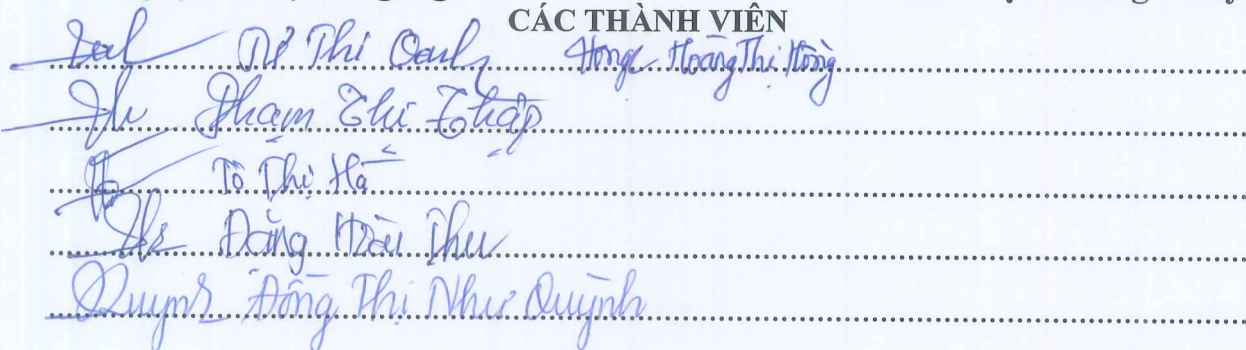 CÁC THÀNH VIÊN
Thị Oanh Hoàng Thị Hồng
Phạm Thị Thập
Tô Thị Hà
Đặng Hoài Thu
Quỳnh Đồng Thị Như Quỳnh